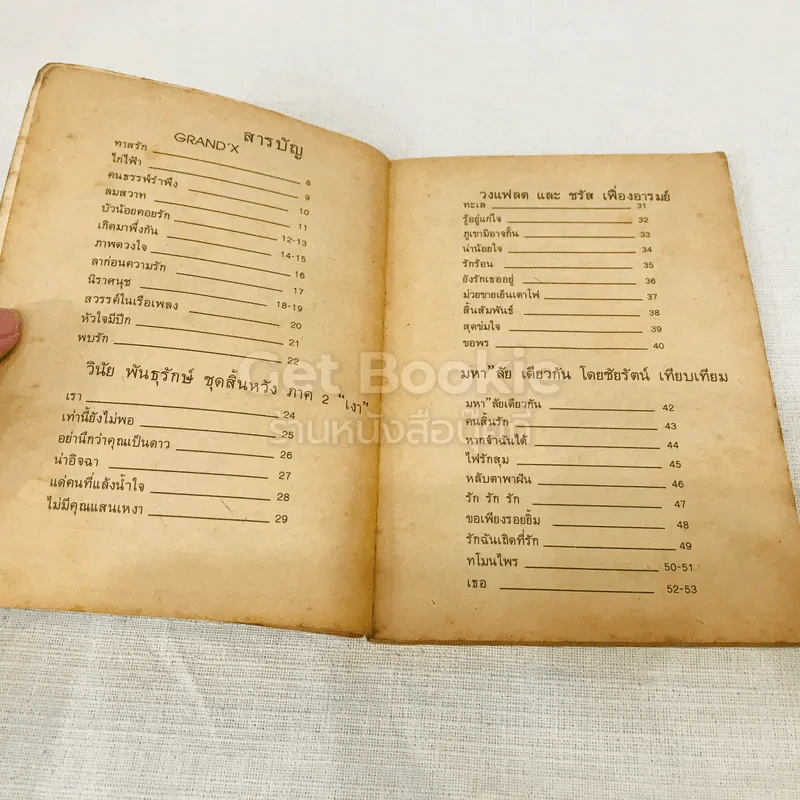 สารบัญ
GRAND'X
ทาสรัก 8
ไก่ไฟ้า 9
คนธรรพ์รำพึง 10
ลมสวาท 11
บัวน้อยคอยรัก 12-13
เกิดมาพึ่งกัน 14-15
ภาพดวงใจ 16
ลาก่อนความรัก 17
นิราศนุช 18-19
สวรรค์ในเรือเพลง 20
หัวใจมีปีก 21
พบรัก 22
วินัย พันธุรักษ์ ชุดสิ้นหวัง ภาค 2 "เงา"
เรา 24
เท่านี้ยังไม่พอ 25
อย่านึกว่าคุณเป็นดาว 26
น่าอิจฉา 27
แด่คนที่แล้งน้ำใจ 28
ไม่มีคุณแสนเหงา 29
วงแฟลต และ ชรัส เฟื่องอารมย์
ทะเล 31
รู้อยู่แก่ใจ 32
ภูเขามิอาจกั้น 33
น่าน้อยใจ 34
รักร้อน 35
ยังรักเธออยู่ 36
ม่วยขายเย็นเตาโฟ 37
สิ้นสัมพันธ์ 38
สุดข่มใจ 39
ขอพร 40
มหา"ลัย เดียวกัน โดยชัยรัตน์ เทียบเทียม
มหา"ลัยเดียวกัน 42
คนสิ้นรัก 43
หากจำฉันได้ 44
ไฟรักสุม 45
หลับตาพาฝัน 46
รัก รัก รัก 47
ขอเพียงรอยยิ้ม 48
รักฉันเถิดที่รัก 49
ทโมนไพร 50-51
เธอ 52-53
Get Bookie
ร้านหนังสือเก็ทบุ๊คกี้